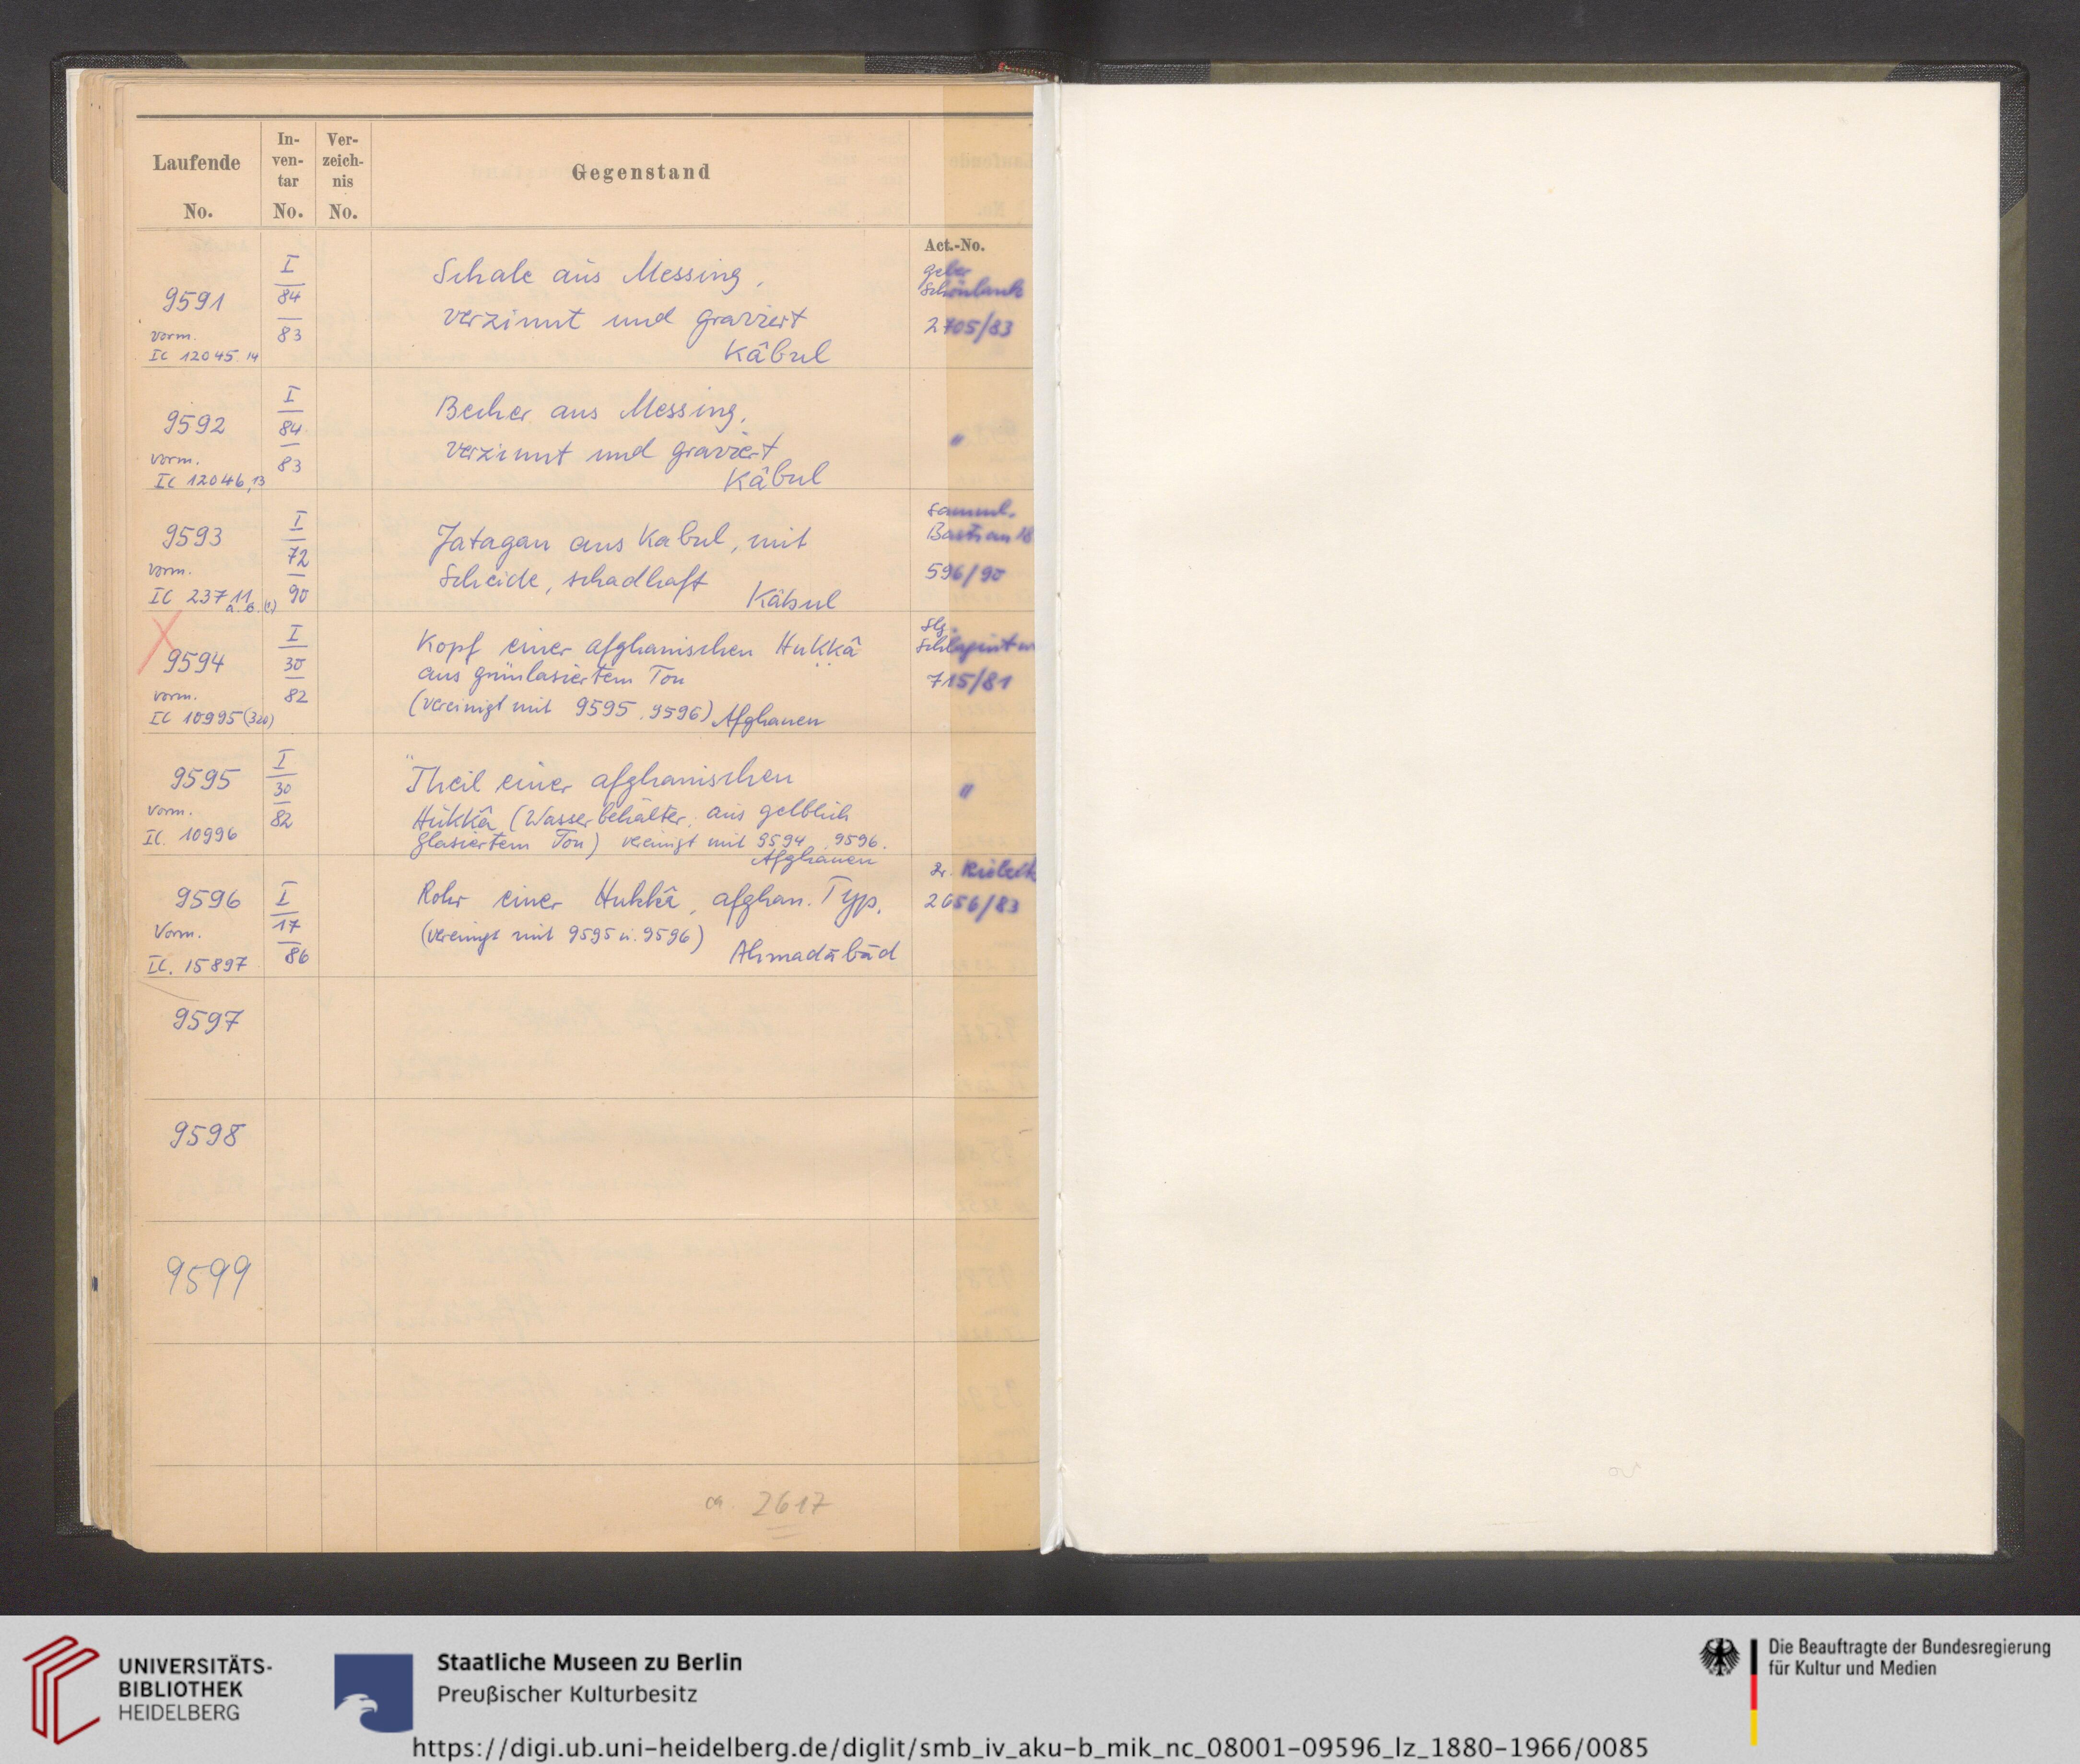 Laufende
No.
In-
ven-
tar
No.
Ver-
zeich-
nis
No.
Gegenstand
Act.-No.
9591
vorm.
IC 12045 14
I
84
83
Schale aus Messing,
verzinnt und graviert
Kâbul
Geber
Schönlank
2705/83
9592
vorm.
IC 12046,13
I
84
83
Becher aus Messing,
verzinnt und graviert
Kâbul
"
9593
vorm.
IC 23711
a. b. (c)
I
72
90
Jatagan aus Kabul, mit
Scheide, schadhaft
Kâbul
Samml.
Bastian
596/90
9594
vorm.
IC 10995 (320)
I
30
82
Kopf einer afghanischen Hukkâ
aus grünlasiertem Ton
(vereinigt mit 9595, 9596) Afghanen
Slg.
715/81
9595
vorm.
IC. 10996
I
30
82
"Theil einer afghanischen
Hukkâ (Wasserbehälter, aus gelblich
glasiertem Ton) vereinigt mit 9594, 9596.
Afghanen
"
9596
Vorm.
IC. 15897
I
17
86
Rohr einer Hukkâ, afghan. Typ.
(vereinigt mit 9595 u. 9596)
Ahmadābād
2656/83
9597
9598
9599
ca. 2617
UNIVERSITÄTS-
BIBLIOTHEK
HEIDELBERG
Staatliche Museen zu Berlin
Preußischer Kulturbesitz
https://digi.ub.uni-heidelberg.de/diglit/smb_iv_aku-b_mik_nc_08001-09596_lz_1880-1966/0085
Die Beauftragte der Bundesregierung
für Kultur und Medien